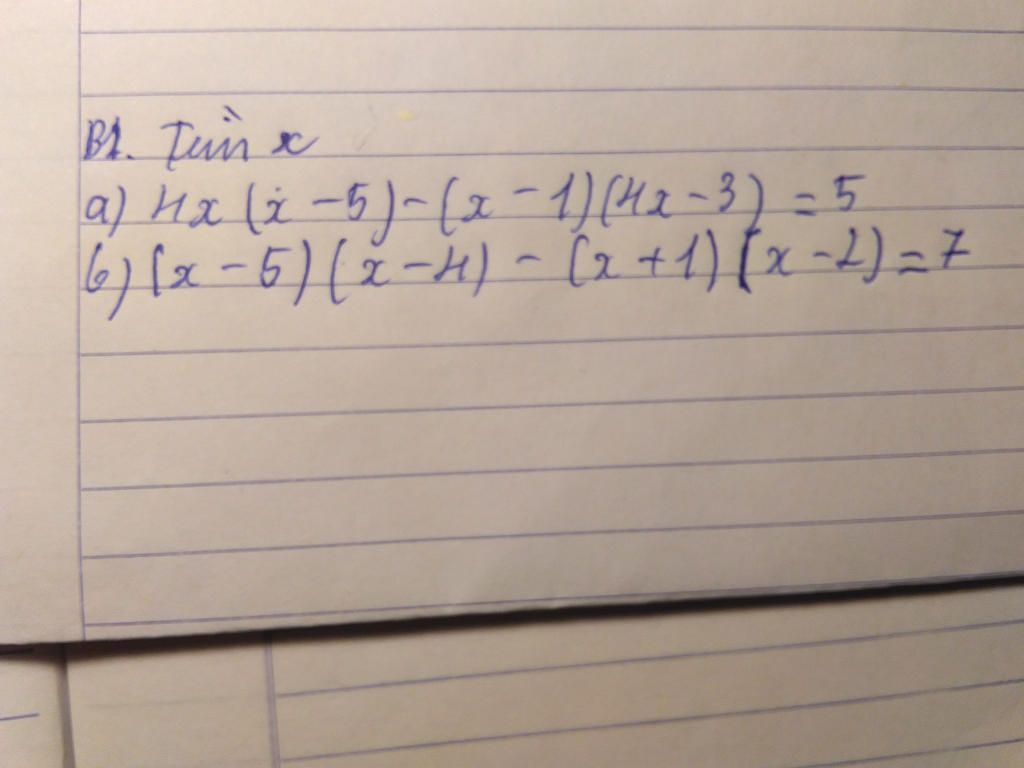 B1. Tìm x
a) 4x(x-5)-(x-1)(4x-3)=5
b) (x-5)(x-4)-(x+1)(x-2)=7